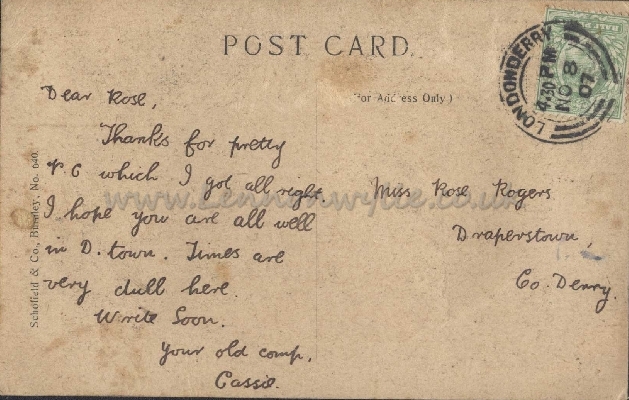 POST CARD
(For Address Only)
LONDONDERRY
4.30 PM
NO 8
07
Dear Rose,
Thanks for pretty
P.C which I got all right
I hope you are all well
in D. town. Times are
very dull here.
Write Soon.
Your old comp.
Cassie.
Miss Rose Rogers
Draperstown,
Co. Derry.
Schofield & Co., Burnley, No. 640.